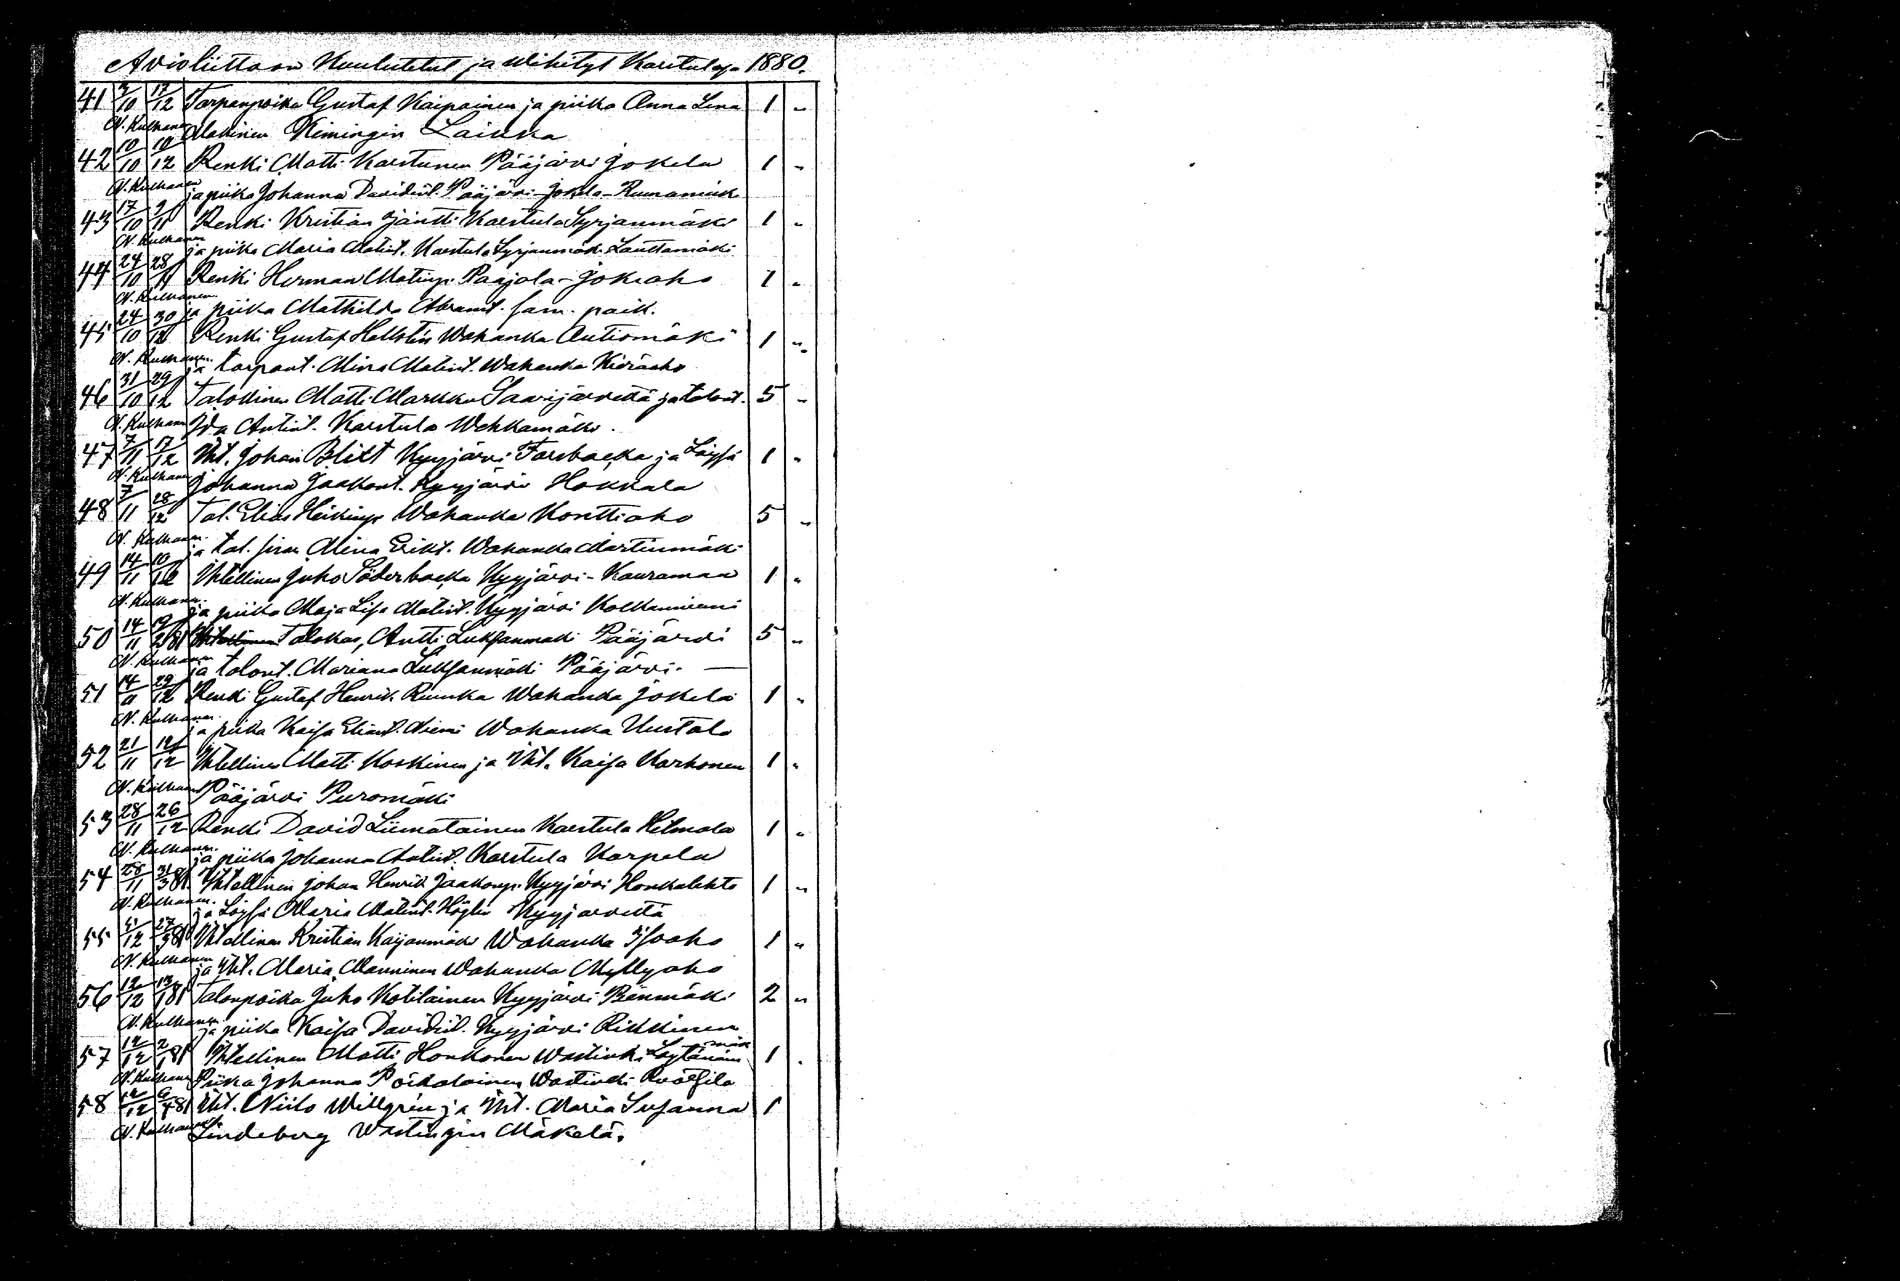 Avioliittoon Kuulutetut ja Wihityt Karstulassa 1880.
41 3/10 17/12 Torpanpoika Gustaf Kaipainen ja piika Anna Lena 1 "
N. Kulhanen Makinen Kimingin Laiska
42 10/10 10/12 Renki Matti Karstunen Pääjärvi Jokela 1 "
N. Kulhanen ja piika Johanna Davidint. Pääjärvi Jokela-Ruunamäk
43 17/10 9/11 Renki Kristian Jäntti Karstula Syrjanmäki 1 "
N. Kulhanen ja piika Maria Matint. Karstula Syrjanmäki Lauttamäki
44 24/10 28/11 Renki Herman Matinp. Paajala-Jokiaho 1 "
N. Kulhanen ja piika Mathilda Abramt. sam. paik.
45 24/10 30/12 Renki Gustaf Hallstén Wahanka Autiomäki 1 "
N. Kulhanen ja torpant. Mina Matint. Wahanka
46 31/10 29/12 Talollinen Matti Markku Saarijärveltä ja talont. 5 "
N. Kulhanen Ida Antint. Karstula Wehkamäki.
47 7/11 17/12 Iht. Johan Blixt Kyyjärvi Forsbacka ja Löysä 1 "
N. Kulhanen Johanna Jaakont. Kyyjärvi Hokkala
48 7/11 28/12 Tal. Elias Heikinp. Wahanka Konttiaho 5 "
N. Kulhanen ja tal. Mina Erikt. Wahanka Martinmäki
49 14/11 10/12 Ihtellinen Juho Söderbacka Kyyjärvi-Kauramaa 1 "
N. Kulhanen ja piika Maja Lisa Matint. Kyyjärvi Kolkanniemi
50 14/11 Talokas, Antti Luksanmäki Pääjärvi 5 "
N. Kulhanen ja talont. Mariana Luksanmäki Pääjärvi. —
51 14/11 29/12 Renki Gustaf Henrik. Ruuska Wahanka Jokela 1 "
N. Kulhanen ja piika Kaisa Eliant. Niemi Wahanka Uustalo
52 21/11 12/12 Ihtellinen Matti Koskinen ja Iht. Kaisa Karhonen 1 "
N. Kulhanen Pääjärvi Puromäki
53 28/11 26/12 Renki David Liimatainen Karstula Hilmola 1 "
N. Kulhanen ja piika Johanna Antint. Karstula Korpela
54 28/11 31/3 81 Ihtellinen Johan Henrik Jaakonp. Kyyjärvi Honkalehto 1 "
N. Kulhanen ja Löysä Maria Matint. Höglin Kyyjärveltä
55 5/12 27/3 81 Ihtellinen Kristian Kaijanmäki Wahanka Isoaho 1 "
N. Kulhanen ja Iht. Maria Manninen Wahanka Myllyaho
56 12/12 13/1 81 Talonpoika Juho Kotilainen Kyyjärvi Penmäki 2 "
N. Kulhanen ja piika Kaisa Davidint. Kyyjärvi Rikkinen
57 12/12 2/1 81 Ihtellinen Matti Honkonen Wastinki Löytänän mäk 1 "
N. Kulhanen Piika Johanna Poikolainen Wastinki
58 12/12 81 Iht. Niilo Willgrén ja Iht. Maria Susanna 1
N. Kulhanen Lindeberg Wastingin Mäkelä.